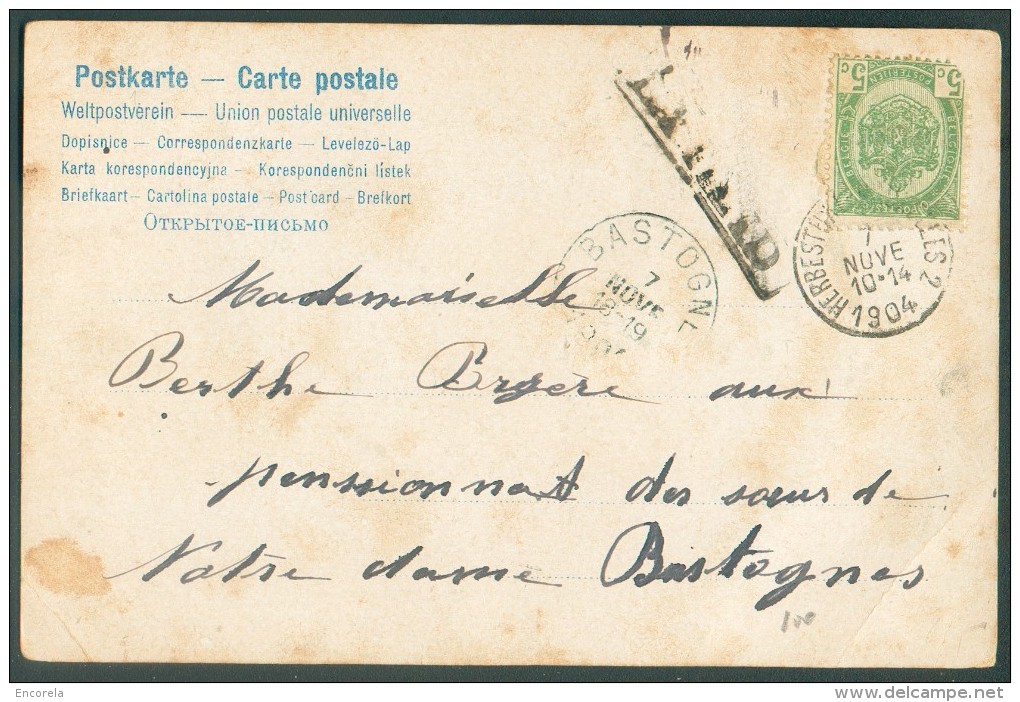 Postkarte — Carte postale
Weltpostverein — Union postale universelle
Dopisnice — Correspondenzkarte — Levelező-Lap
Karta korespondencyjna — Korespondenční lístek
Briefkaart — Cartolina postale — Post card — Brefkort
Открытое-письмо
5 c 5 c
POSTERIJEN
BELGIE
BELGIQUE
7
NOVE
10-14
1904
BASTOGNE
7
NOVE
18-19
Mademoiselle
Berthe aux
pensionnat des sœurs de
Notre dame Bastognes
100
Encorela
www.delcampe.net